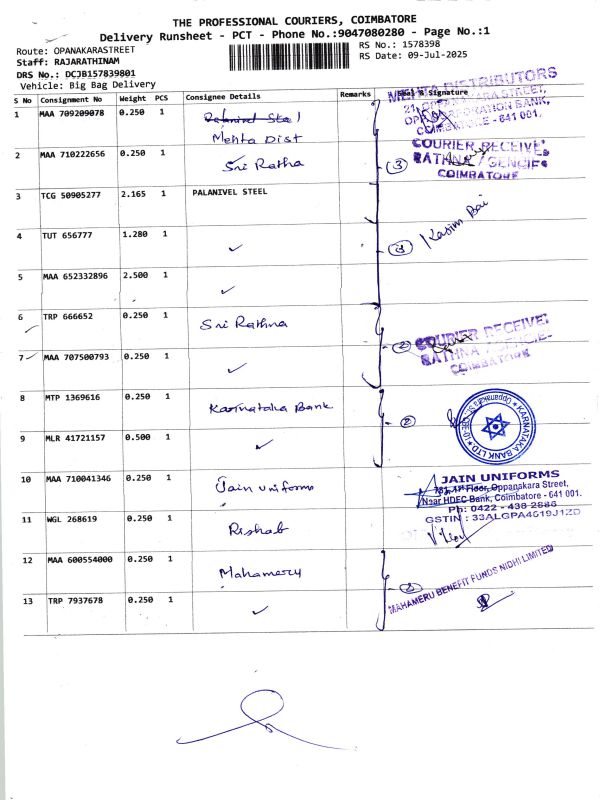 THE PROFESSIONAL COURIERS, COIMBATORE
Delivery Runsheet - PCT - Phone No.:9047080280 - Page No.:1
Route: OPANAKARASTREET
RS No.: 1578398
Staff: RAJARATHINAM
RS Date: 09-Jul-2025
DRS No.: DCJB157839801
Vehicle: Big Bag Delivery
S No Consignment No Weight PCS Consignee Details Remarks Seal & Signature
1 MAA 709209078 0.250 1
Mehta Dist
MEHTA DISTRIBUTORS
COIMBATORE - 641 001.
2 MAA 710222656 0.250 1 Sri Ratha
COURIER RECEIVE
RATHNA AGENCIES
COIMBATORE
3
3 TCG 50905277 2.165 1 PALANIVEL STEEL
4 TUT 656777 1.280 1 ✓
5 MAA 652332896 2.500 1 ✓
6 TRP 666652 0.250 1 Sri Rathna
COURIER RECEIVE
RATHNA AGENCIE
COIMBATORE
2
7 MAA 707500793 0.250 1 ✓
8 MTP 1369616 0.250 1 Karnataka Bank
2
KARNATAKA BANK LTD
9 MLR 41721157 0.500 1 ✓
10 MAA 710041346 0.250 1 Jain uniforms
JAIN UNIFORMS
Floor, Oppanakara Street,
Near HDFC Bank, Coimbatore - 641 001.
Ph: 0422 - 438 2886
GSTIN : 33ALGPA4619J1ZD
11 WGL 268619 0.250 1 Rishab
12 MAA 600554000 0.250 1 Mahamery
MAHAMERU BENEFIT FUNDS NIDHI LIMITED
13 TRP 7937678 0.250 1 ✓